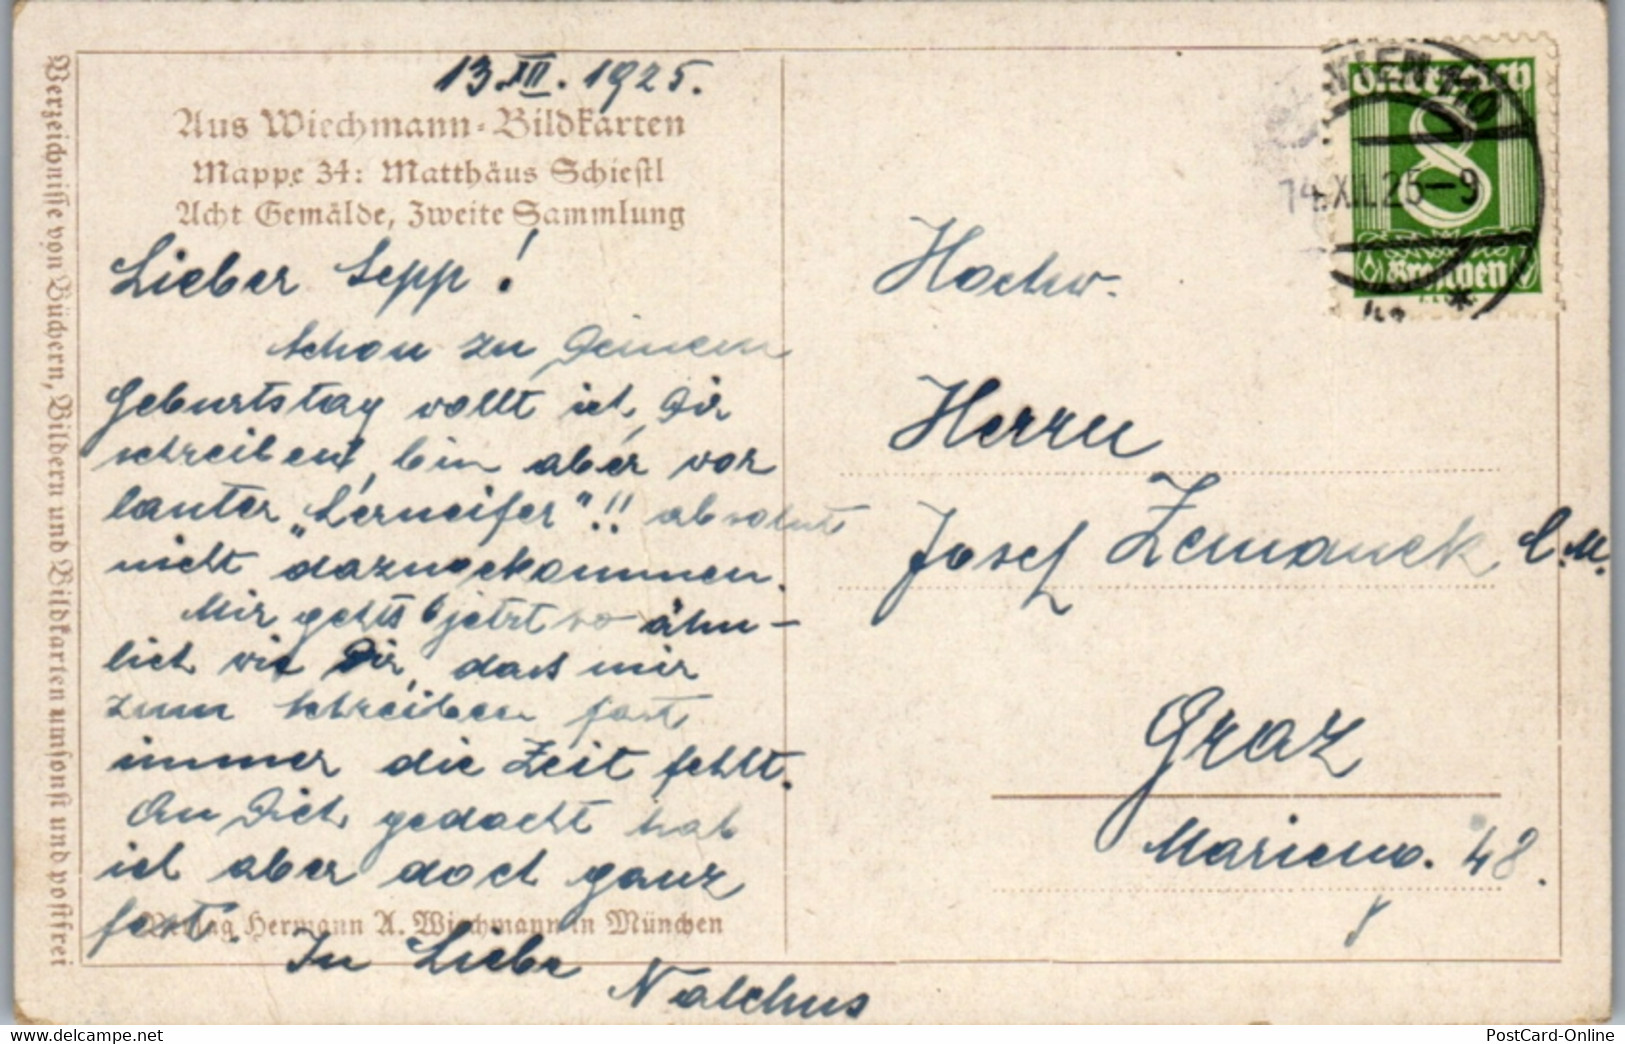 13.XII.1925.
Aus Wiechmann-Bildkarten
Mappe 34: Matthäus Schiestl
Acht Gemälde, Zweite Sammlung
Lieber Sepp!
Schon zu Deinem
Geburtstag wollt ich Dir
schreiben, bin aber vor
lauter „Lerneifer"!! absolut
nicht dazugekommen.
Mir gehts jetzt so ähn-
lich wie Dir, dass mir
zum Schreiben fast
immer die Zeit fehlt.
An Dich gedacht hab
ich aber doch ganz
fest.
Verlag Hermann A. Wiechmann in München
In Liebe
Verzeichnisse von Büchern, Bildern und Bildkarten umsonst und postfrei
WIEN 110
14.XII.25-9
Österreich
8
Kronen
Hochw.
Herrn
Josef Zemanek C.M.
Graz
Marieng. 48.
www.delcampe.net
PostCard-Online